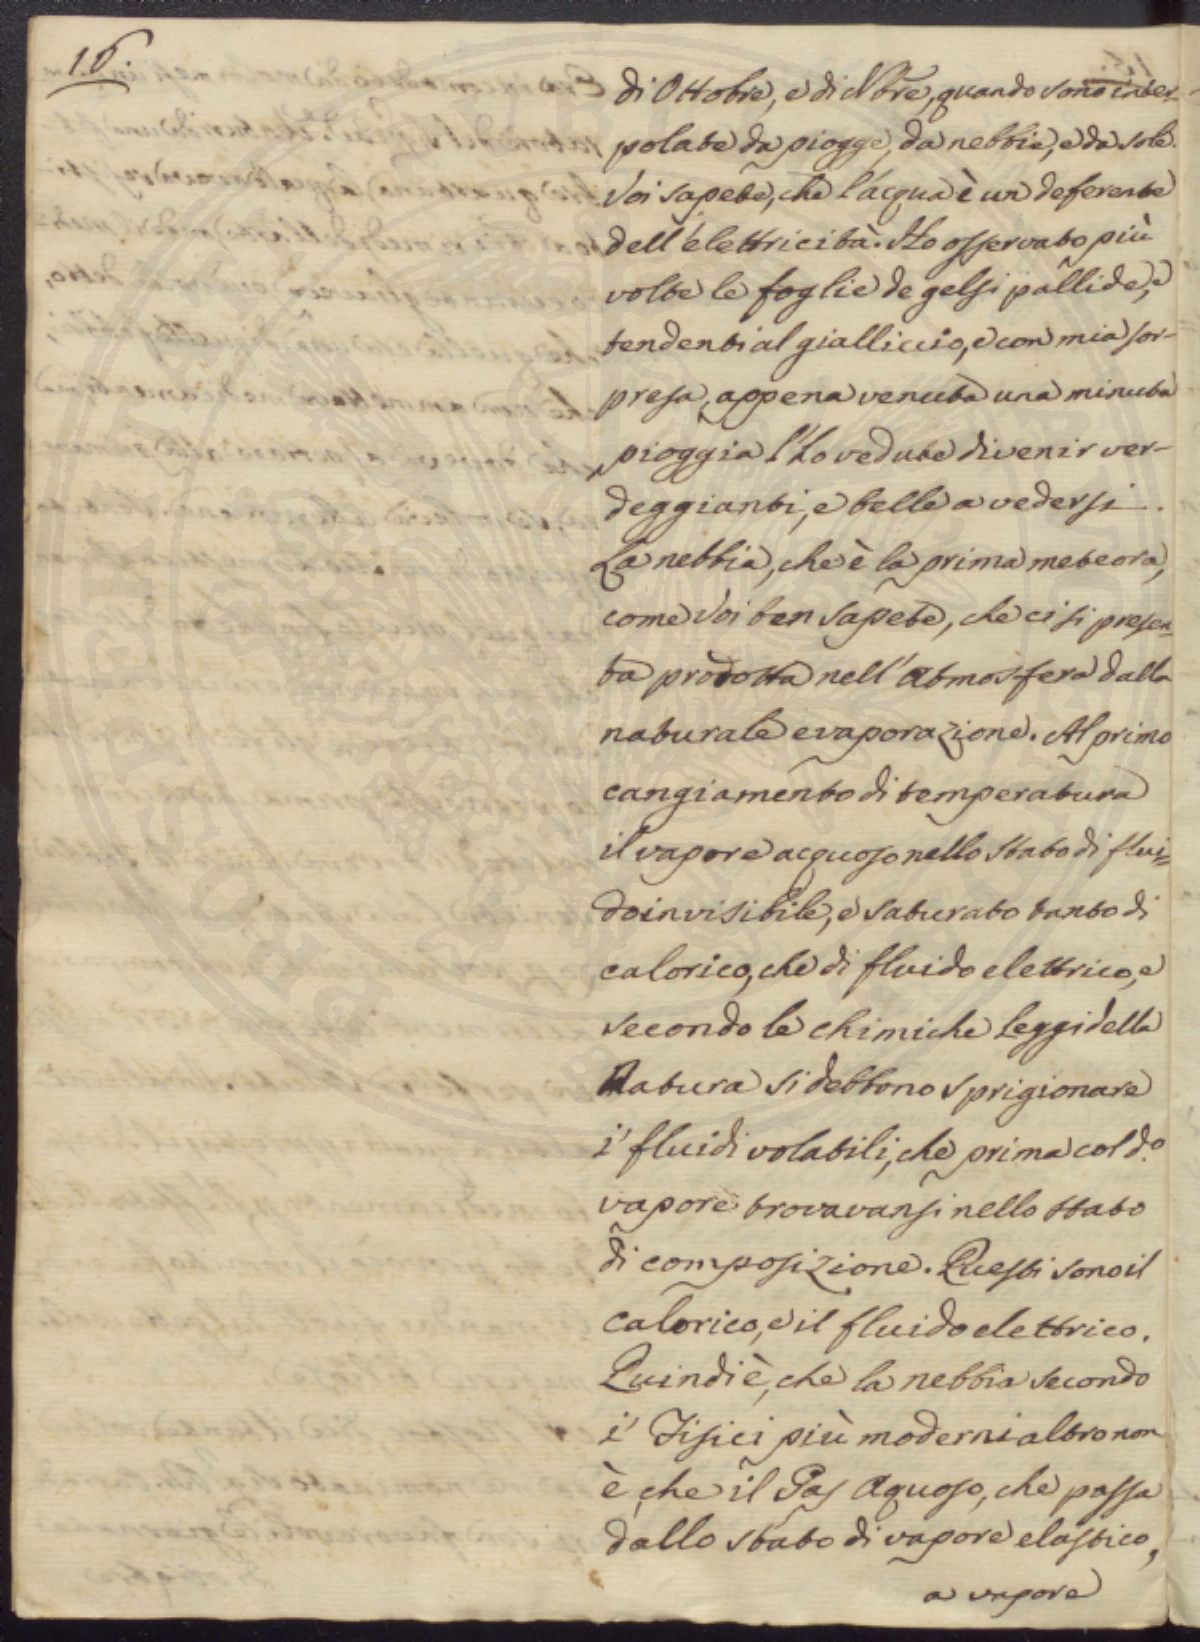 16.
di Ottobre, e di Nbre, quando sono inter-
polate da piogge, da nebbie, e da sole.
Voi sapete, che l'acqua è un deferente
dell'elettricità. Ho osservato più
volte le foglie de gelsi pallide, e
tendenti al gialliccio, e con mia sor-
presa, appena venuta una minuta
pioggia l'ho vedute divenir ver-
deggianti, e belle a vedersi.
La nebbia, che è la prima meteora,
come Voi ben sapete, che ci si presen-
ta prodotta nell'Atmosfera dalla
naturale evaporazione. Al primo
cangiamento di temperatura
il vapore acquoso nello stato di flui=
do invisibile, e saturato tanto di
calorico, che di fluido elettrico, e
secondo le chimiche Leggi della
Natura si debbono sprigionare
i' fluidi volatili, che prima col d.o
vapore trovavansi nello stato
di composizione. Questi sono il
calorico, e il fluido elettrico.
Quindi è, che la nebbia secondo
i' Fisici più moderni altro non
è, che il Gas Aquoso, che passa
dallo stato di vapore elastico,
a vapore